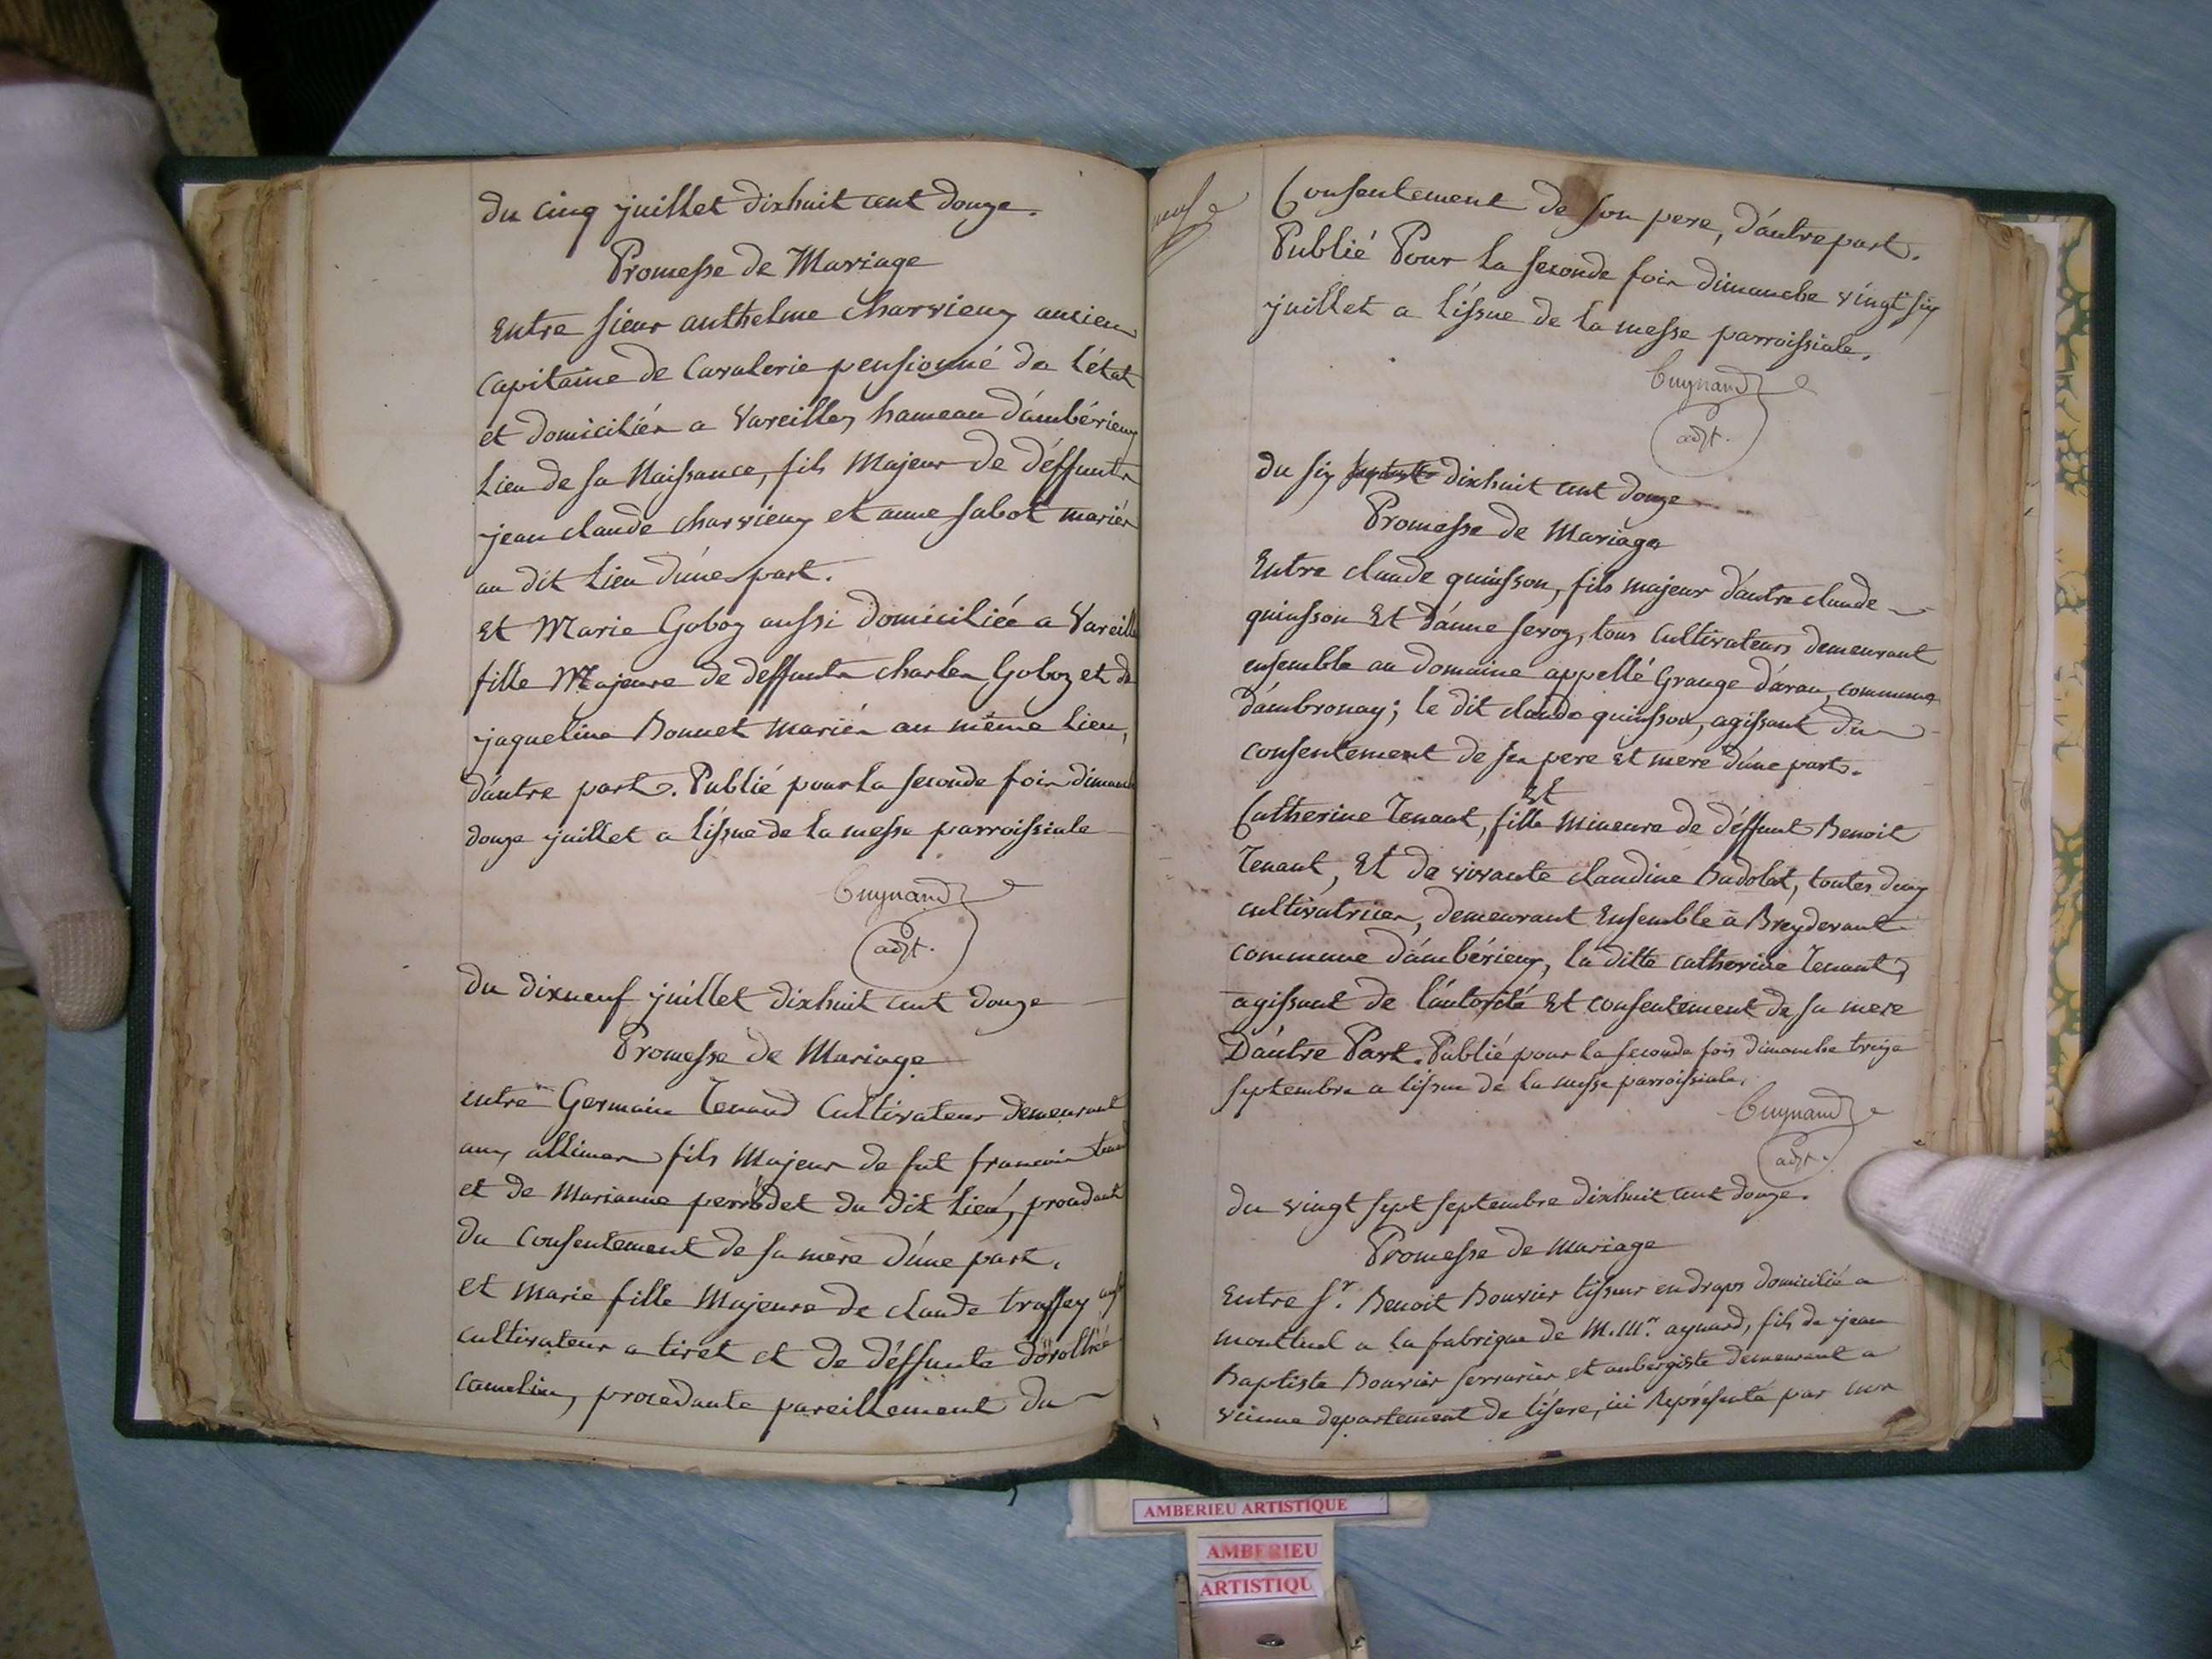 du cinq juillet dixhuit cent douze.
Promesse de Mariage
Entre sieur anthelme charvieux ancien
capitaine de Cavalerie pensionné de l'état
et domicilié a Vareilles hameau d'ambérieux
Lieu de sa Naissance, fils Majeur de déffunts
jean claude charvieux et anne sabot mariés
au dit Lieu d'une part.
Et Marie Goboz aussi domiciliée a Vareille
fille Majeure de deffunts charles Goboz et de
jaqueline Bonnet mariés au même Lieu,
d'autre part. Publié pour la seconde fois dimanche
douze juillet a l'issue de la messe parroissiale
Cuynand
adjt.
du dixneuf juillet dixhuit cent douze
Promesse de Mariage
entre Germain Tenand Cultivateur demeurant
aux allimes fils Majeur de fut francois
et de Marianne perrodet du dit Lieu, procedant
du Consentement de sa mere d'une part.
et Marie fille Majeure de claude truffey
cultivateur a tiret et de déffunte dorothée
camelin, procedante pareillement du
neuf
Consentement de son pere, d'autre part.
Publié Pour la seconde fois dimanche vingt six
juillet a l'issue de la messe parroissiale.
Cuynand
adjt.
du six septembre dixhuit cent douze
Promesse de Mariage
Entre claude quinsson, fils majeur d'autre claude
quinsson Et d'anne seroz, tous Cultivateurs demeurant
ensemble au domaine appellé Grange d'arau, commune
d'ambronay; le dit claude quinsson, agissant du
consentement de ses pere et mere d'une part.
Et
Catherine Tenant, fille Mineure de déffunt Benoit
Tenant, Et de vivante claudine Badolat, toutes deux
cultivatrices, demeurant Ensemble à Breydevant
commune d'ambérieux, la ditte catherine Tenant,
agissant de l'autorité Et consentement de sa mere
D'autre Part. Publié pour la seconde fois dimanche treize
septembre a l'issue de la messe parroissiale.
Cuynand
adjt.
du vingt sept septembre dixhuit cent douze.
Promesse de mariage
Entre Sr. Benoit Bouvier tisseur en draps domicilié a
montluel a la fabrique de M. Mr. aynard, fils de jean
Baptiste Bouvier serrurier et aubergiste demeurant a
vienne departement de l'isere, ici Représenté par
AMBERIEU ARTISTIQUE
AMBERIEU
ARTISTIQU